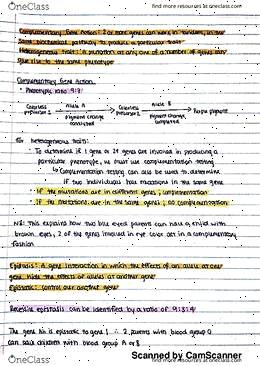 OneClass
find more resources at oneclass.com
Complementary Gene Action: 2 or more genes can work in tandem, in the
same biochemical pathway to produce a particular trait
Heterogeneous trait: a mutation at any one of a number of genes can
give rise to the same phenotype
Complementary Gene Action
• Phenotypic ratio 9:7
Colorless precursor 1 → Allele A → Colorless precursor 2 → Allele B → Purple pigment
pigment change catalyzed
pigment change completed
For heterogeneous traits:
• To determine if 1 gene or 2+ genes are involved in producing a
particular phenotype, we must use complementation testing
↳ Complementation testing can also be used to determine
if two individuals has mutations in the same gene
• if the mutations are in different genes, complementation
• if the mutations are in the same genes, no complementation
NB: This explains how two blue eyed parents can have a child with
brown eyes, 2 of the genes involved in eye color act in a complementary
fashion
Epistasis: A gene interaction in which the effects of an allele at one
gene hide the effects of alleles at another gene
Epistatic: control over another gene
Recessive epistasis can be identified by a ratio of 9:3:4
The gene is epistatic to gene I ∴ 2 parents with blood group O
can have children with blood group A or B
Scanned by CamScanner
find more resources at oneclass.com
OneClass